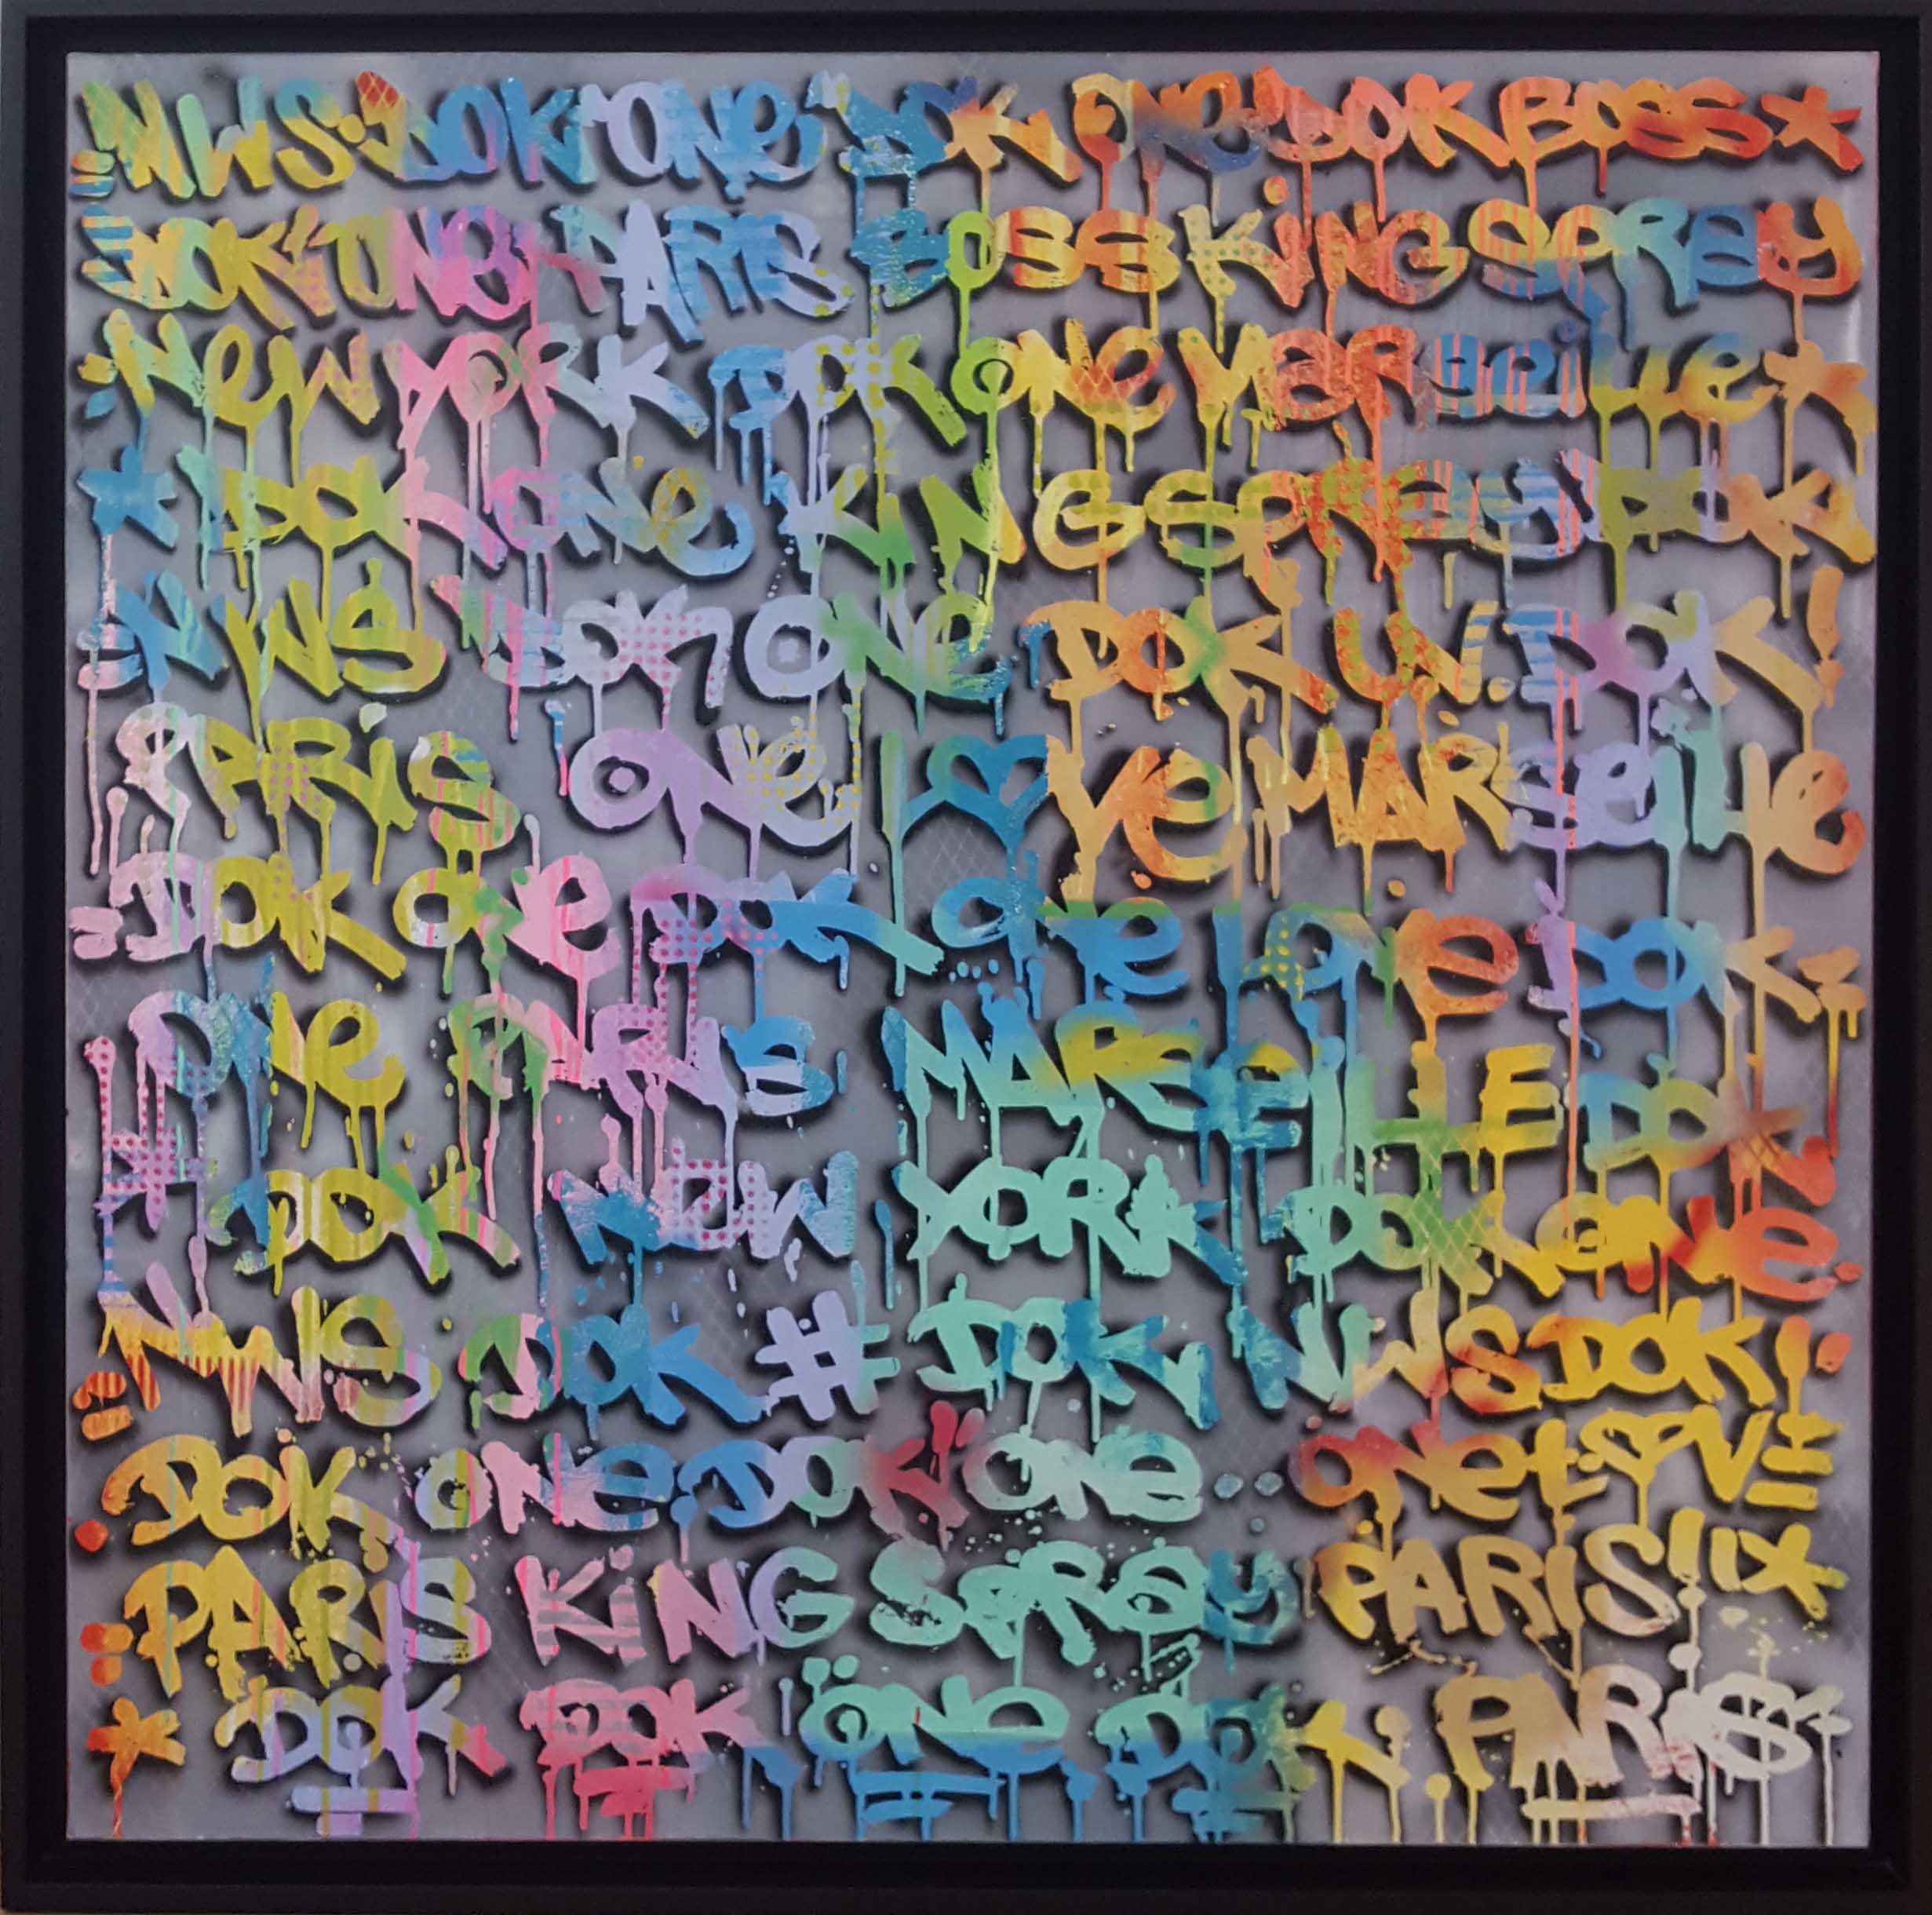 NWS. DOK'ONE DOK ONE DOK BOSS*
DOK'ONE PARIS BOSS KiNG SPRay
NeW YORK DOK ONe MaRseille*
* DOK ONe KiNG SPRay DOK
NWS DOK ONe DOK UN. DOK!
PARiS ONe I ♥ Ye MARseille
=DOK One DOK One Love DOK-
ONe PARiS MARSeiLLE DOK
* DOK NeW YORK DOK ONe.
NWS DOK # DOK NWS DOK!
DOK ONe. DOK' ONe ... ONe LOVE
PARiS KiNG SPRay PARiS!!*
* DOK DOK ONe DOK. PARiS